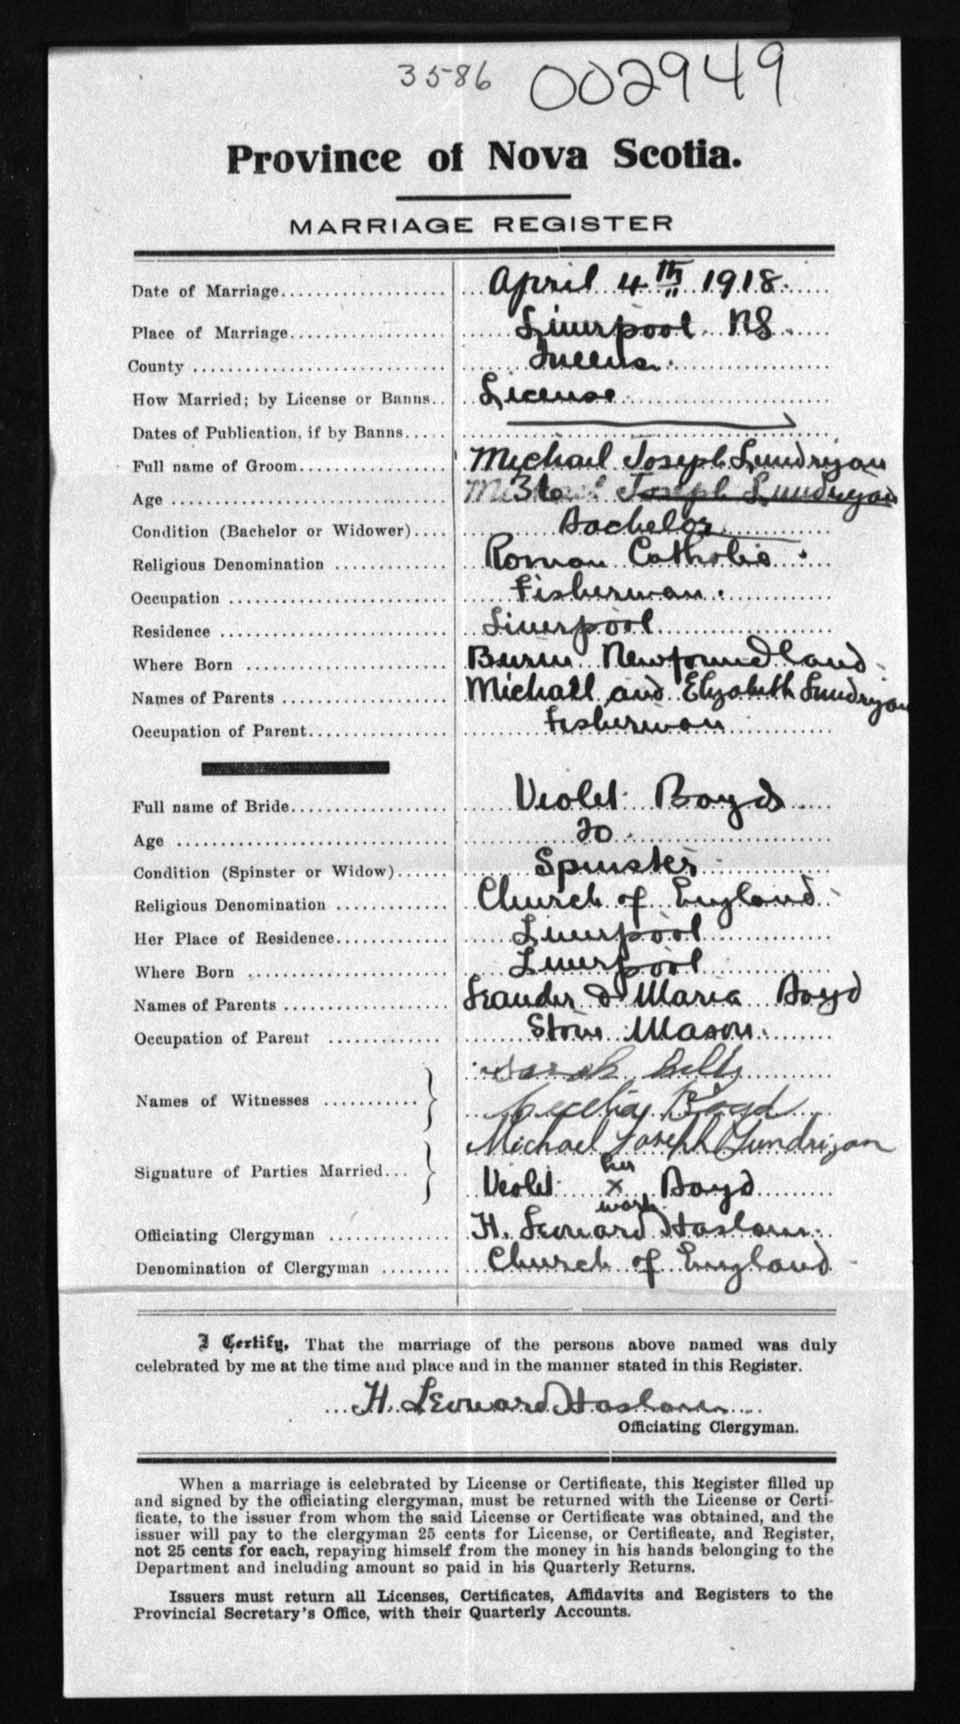 3586 002949
Province of Nova Scotia.
MARRIAGE REGISTER
Date of Marriage.................... April 4th 1918.
Place of Marriage.................... Liverpool NS.
County .................... Queens.
How Married; by License or Banns.. License
Dates of Publication, if by Banns.....
Full name of Groom.................... Michael Joseph Lundrygan
Age .................... 36 Joseph Lundrygan
Condition (Bachelor or Widower).... Bachelor
Religious Denomination ............. Roman Catholic.
Occupation .................... Fisherman.
Residence .................... Liverpool
Where Born .................... Burin Newfoundland.
Names of Parents .................... Michall and Elizabeth Lundrygan
Occupation of Parent.................... Fisherman
Full name of Bride.................... Violet Boyd
Age .................... 20.
Condition (Spinster or Widow)...... Spinster
Religious Denomination ............. Church of England.
Her Place of Residence.............. Liverpool
Where Born .................... Liverpool
Names of Parents .................... Leander & Maria Boyd
Occupation of Parent .............. Stone Mason.
Sarah
Names of Witnesses ........... Cecelia Boyd
Michael Joseph Lundrigan
Signature of Parties Married... Violet her x mark Boyd
Officiating Clergyman .............. H. Leonard Haslam.
Denomination of Clergyman ........ Church of England
I Certify, That the marriage of the persons above named was duly
celebrated by me at the time and place and in the manner stated in this Register.
...H. Leonard Haslam....
Officiating Clergyman.
When a marriage is celebrated by License or Certificate, this Register filled up
and signed by the officiating clergyman, must be returned with the License or Certi-
ficate, to the issuer from whom the said License or Certificate was obtained, and the
issuer will pay to the clergyman 25 cents for License, or Certificate, and Register,
not 25 cents for each, repaying himself from the money in his hands belonging to the
Department and including amount so paid in his Quarterly Returns.
Issuers must return all Licenses, Certificates, Affidavits and Registers to the
Provincial Secretary's Office, with their Quarterly Accounts.